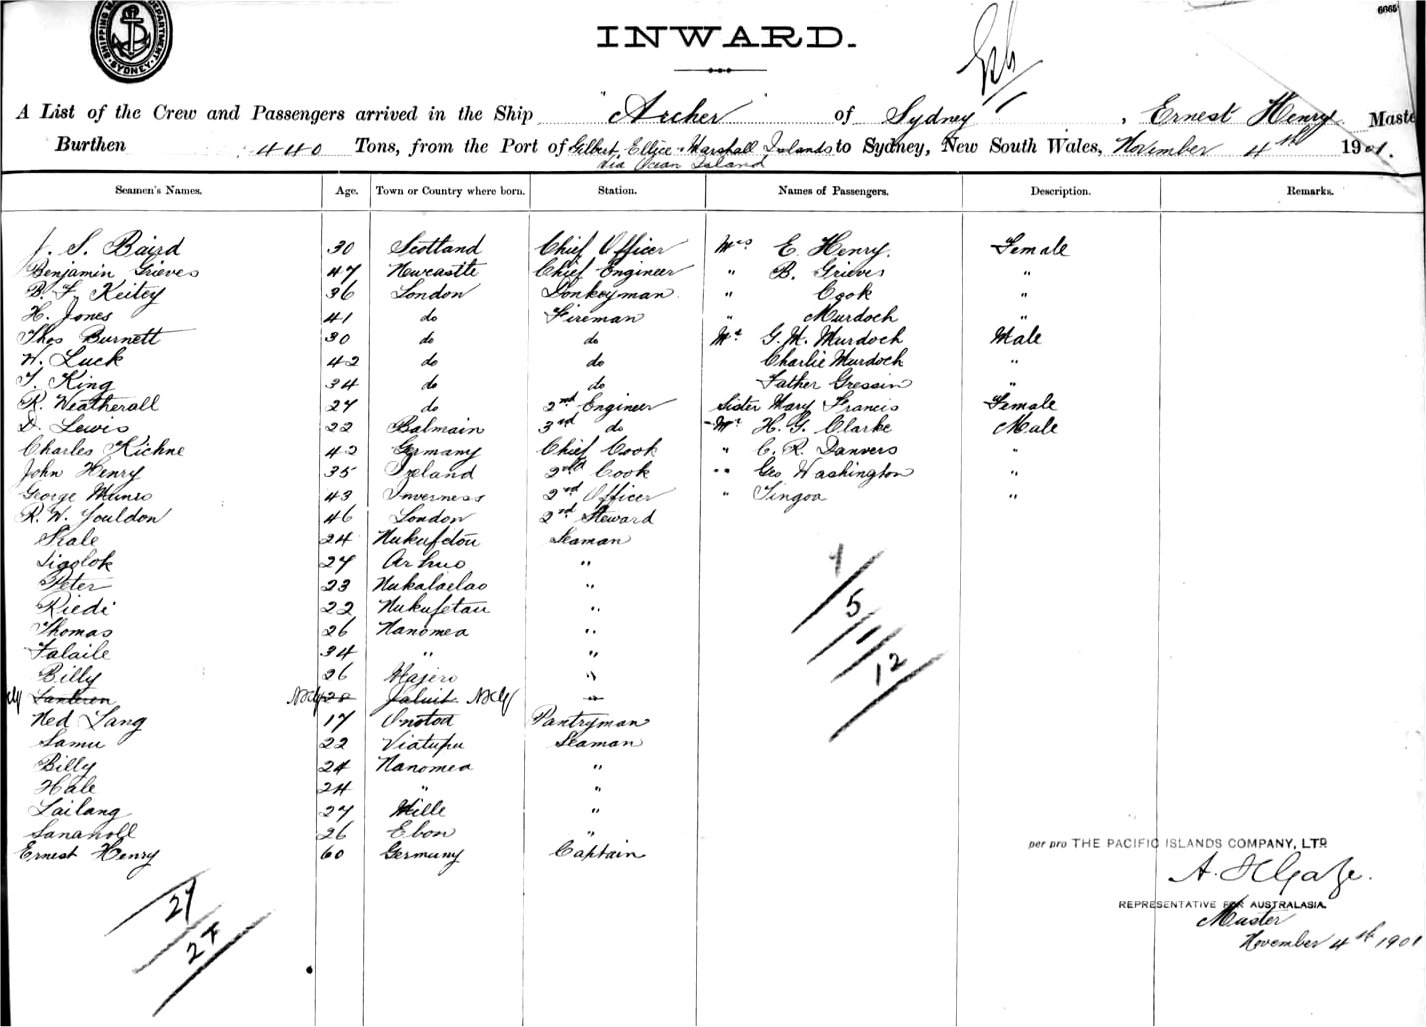 6665
SHIPPING MASTER'S DEPARTMENT SYDNEY
INWARD.
A List of the Crew and Passengers arrived in the Ship "Archer" of Sydney, Ernest Henry Maste
Burthen 440 Tons, from the Port of Gilbert Ellice & Marshall Islands to Sydney, New South Wales, November 4th 1901.
via Ocean Island
Seamen's Names. Age. Town or Country where born. Station. Names of Passengers. Description. Remarks.
S. Baird 30 Scotland Chief Officer Mrs E. Henry. Female
Benjamin Grieves 47 Newcastle Chief Engineer " B. Grieves "
B. F. Keitey 36 London Donkeyman " Cook "
H. Jones 41 do Fireman " Murdoch "
Thos Burnett 30 do do Mr G. M. Murdoch Male
H. Luck 42 do do Charlie Murdoch "
T. King 34 do do Father Gressin "
R. Weatherall 27 do 2nd Engineer Sister Mary Francis Female
D. Lewis 22 Balmain 3rd do Mr H. G. Clarke Male
Charles Kichne 42 Germany Chief Cook " C. R. Danvers "
John Henry 35 Ireland 2nd Cook " Geo Washington "
George Munro 43 Inverness 2nd Officer " Tingoa "
R. W. Youldon 46 London 2nd Steward
24 Nukufetau Seaman
Tigolok 27 Arhno "
Peter 23 Nukulaelae "
Riedi 22 Nukufetau "
Thomas 26 Nanomea "
Falaile 34 " "
Billy 26 Majero "
Lanteren 28 Jaluit "
Ned Lang 17 Onotoa Pantryman
Samu 22 Viatupu Seaman
Billy 24 Nanomea "
Hale 24 " "
Lailang 27 Mille "
Sananoll 26 Ebon "
Ernest Henry 60 Germany Captain
7
5
1
12
27
27
per pro THE PACIFIC ISLANDS COMPANY, LTD
A.
REPRESENTATIVE FOR AUSTRALASIA.
Master
November 4th 1901